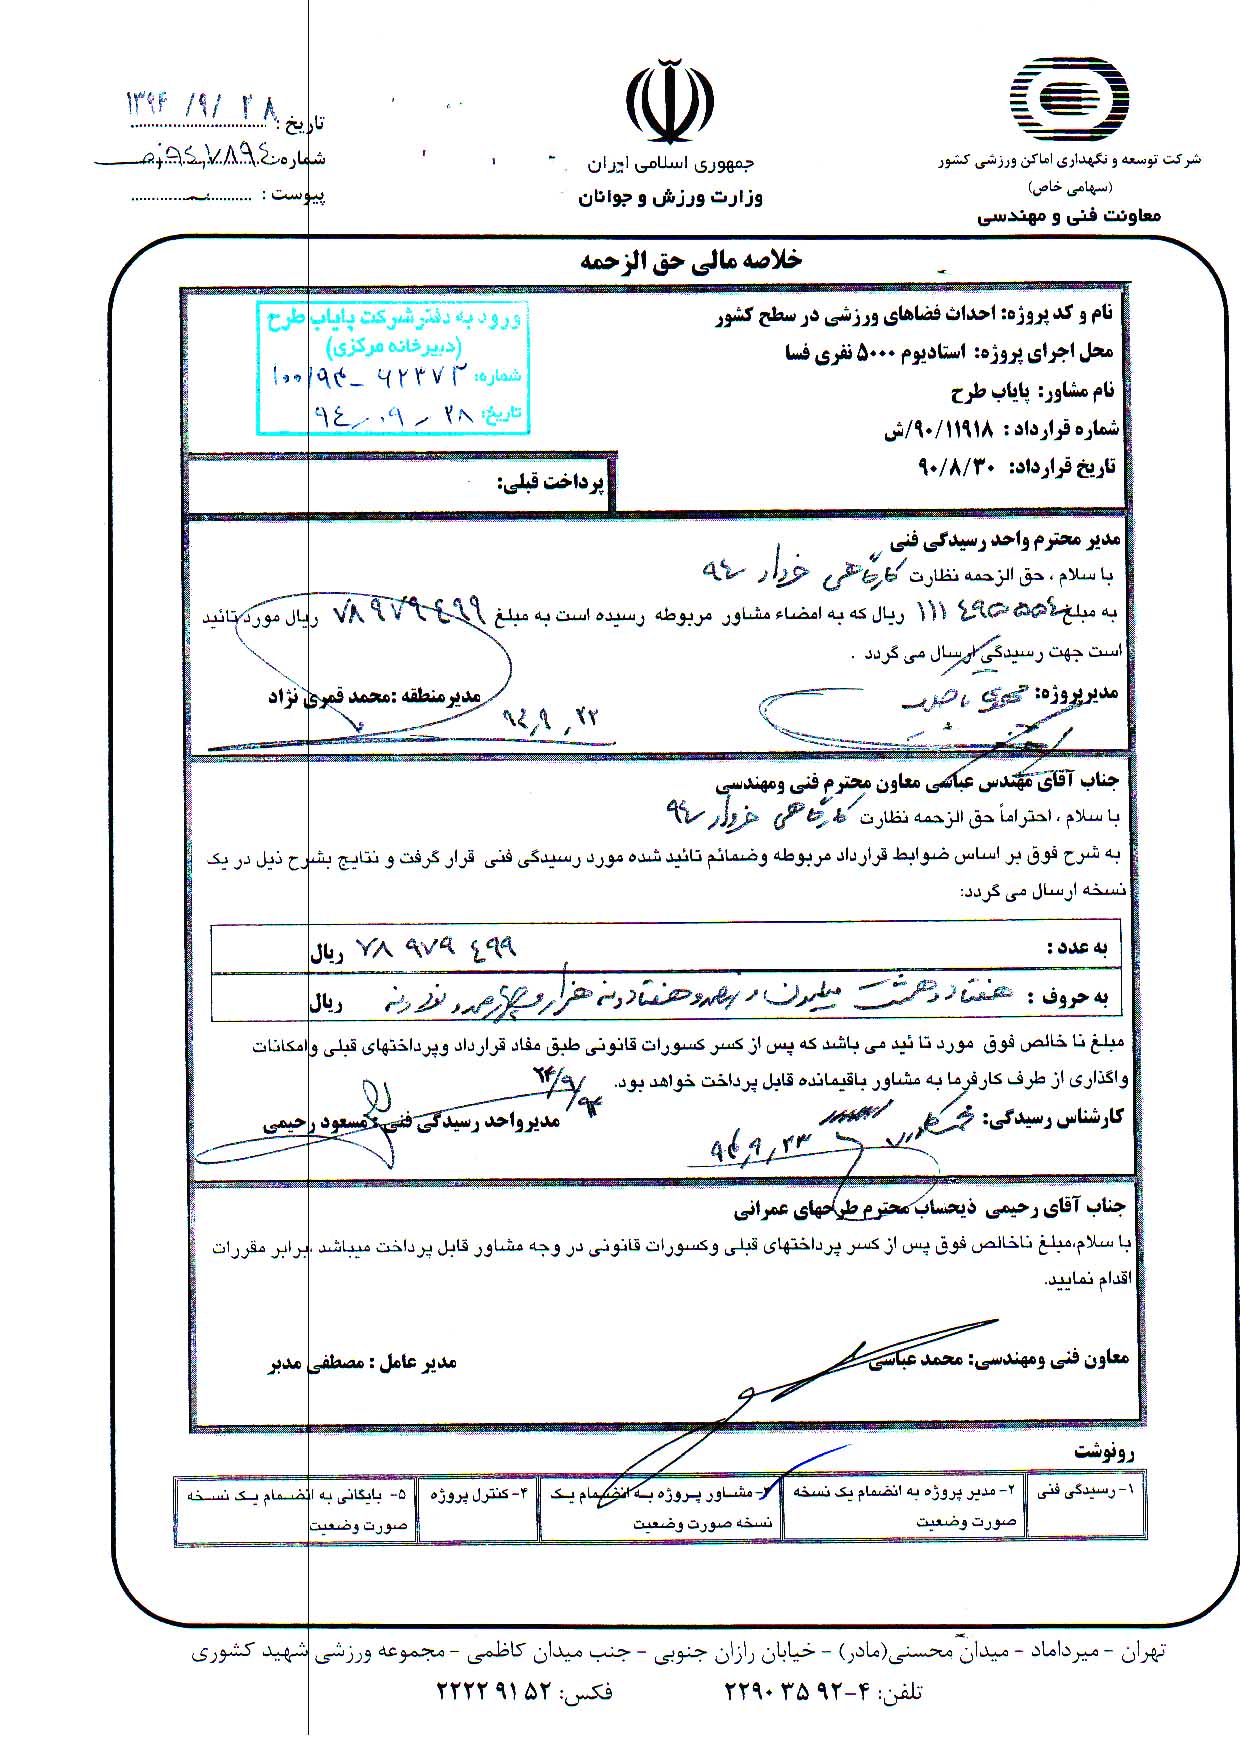 شرکت توسعه و نگهداری اماکن ورزشی کشور
(سهامی خاص)
معاونت فنی و مهندسی
جمهوری اسلامی ایران
وزارت ورزش و جوانان
تاریخ : ۱۳۹۴/۹/۲۸
شماره:
پیوست :
خلاصه مالی حق الزحمه
نام و کد پروژه: احداث فضاهای ورزشی در سطح کشور
محل اجرای پروژه: استادیوم ۵۰۰۰ نفری فسا
نام مشاور: پایاب طرح
شماره قرارداد : ۹۰/۱۱۹۱۸/ش
تاریخ قرارداد: ۹۰/۸/۳۰
ورود به دفتر شرکت پایاب طرح
(دبیرخانه مرکزی)
شماره: ۱۰۰/۹۴-۶۲۳۷۳
تاریخ: ۹۴،۰۹-۲۸
پرداخت قبلی:
مدیر محترم واحد رسیدگی فنی
با سلام ، حق الزحمه نظارت کارگاهی خرداد ۹۴
به مبلغ ۱۱۱ ۴۹۰ ۵۵۴ ریال که به امضاء مشاور مربوطه رسیده است به مبلغ ۷۸ ۹۷۹ ۴۹۹ ریال مورد تائید
است جهت رسیدگی ارسال می گردد .
مدیرپروژه:
مدیرمنطقه :محمد قمری نژاد
۹۴،۹،۲۲
جناب آقای مهندس عباسی معاون محترم فنی ومهندسی
با سلام ، احتراماً حق الزحمه نظارت کارگاهی خرداد ۹۴
به شرح فوق بر اساس ضوابط قرارداد مربوطه وضمائم تائید شده مورد رسیدگی فنی قرار گرفت و نتایج بشرح ذیل در یک
نسخه ارسال می گردد:
به عدد : ۷۸ ۹۷۹ ۴۹۹ ریال
به حروف : هفتاد و هشت میلیون و نهصد و هفتاد و نه هزار و چهارصد و نود و نه ریال
مبلغ نا خالص فوق مورد تا ئید می باشد که پس از کسر کسورات قانونی طبق مفاد قرارداد وپرداختهای قبلی وامکانات
واگذاری از طرف کارفرما به مشاور باقیمانده قابل پرداخت خواهد بود.
۲۴/۹/۹۴
کارشناس رسیدگی:
مدیرواحد رسیدگی فنی : مسعود رحیمی
۹۴،۹،۲۳
جناب آقای رحیمی ذیحساب محترم طرحهای عمرانی
با سلام،مبلغ ناخالص فوق پس از کسر پرداختهای قبلی وکسورات قانونی در وجه مشاور قابل پرداخت میباشد ،برابر مقررات
اقدام نمایید.
معاون فنی ومهندسی: محمد عباسی
مدیر عامل : مصطفی مدبر
رونوشت
۱- رسیدگی فنی
۲- مدیر پروژه به انضمام یک نسخه
صورت وضعیت
۳- مشاور پروژه به انضمام یک
نسخه صورت وضعیت
۴- کنترل پروژه
۵- بایگانی به انضمام یک نسخه
صورت وضعیت
تهران - میرداماد - میدان محسنی(مادر) - خیابان رازان جنوبی - جنب میدان کاظمی - مجموعه ورزشی شهید کشوری
تلفن: ۴-۹۲ ۳۵ ۲۲۹۰
فکس: ۵۲ ۹۱ ۲۲۲۲